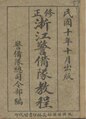 民國十年十月出版
修正
浙江警備隊教程
警備隊總司令部編